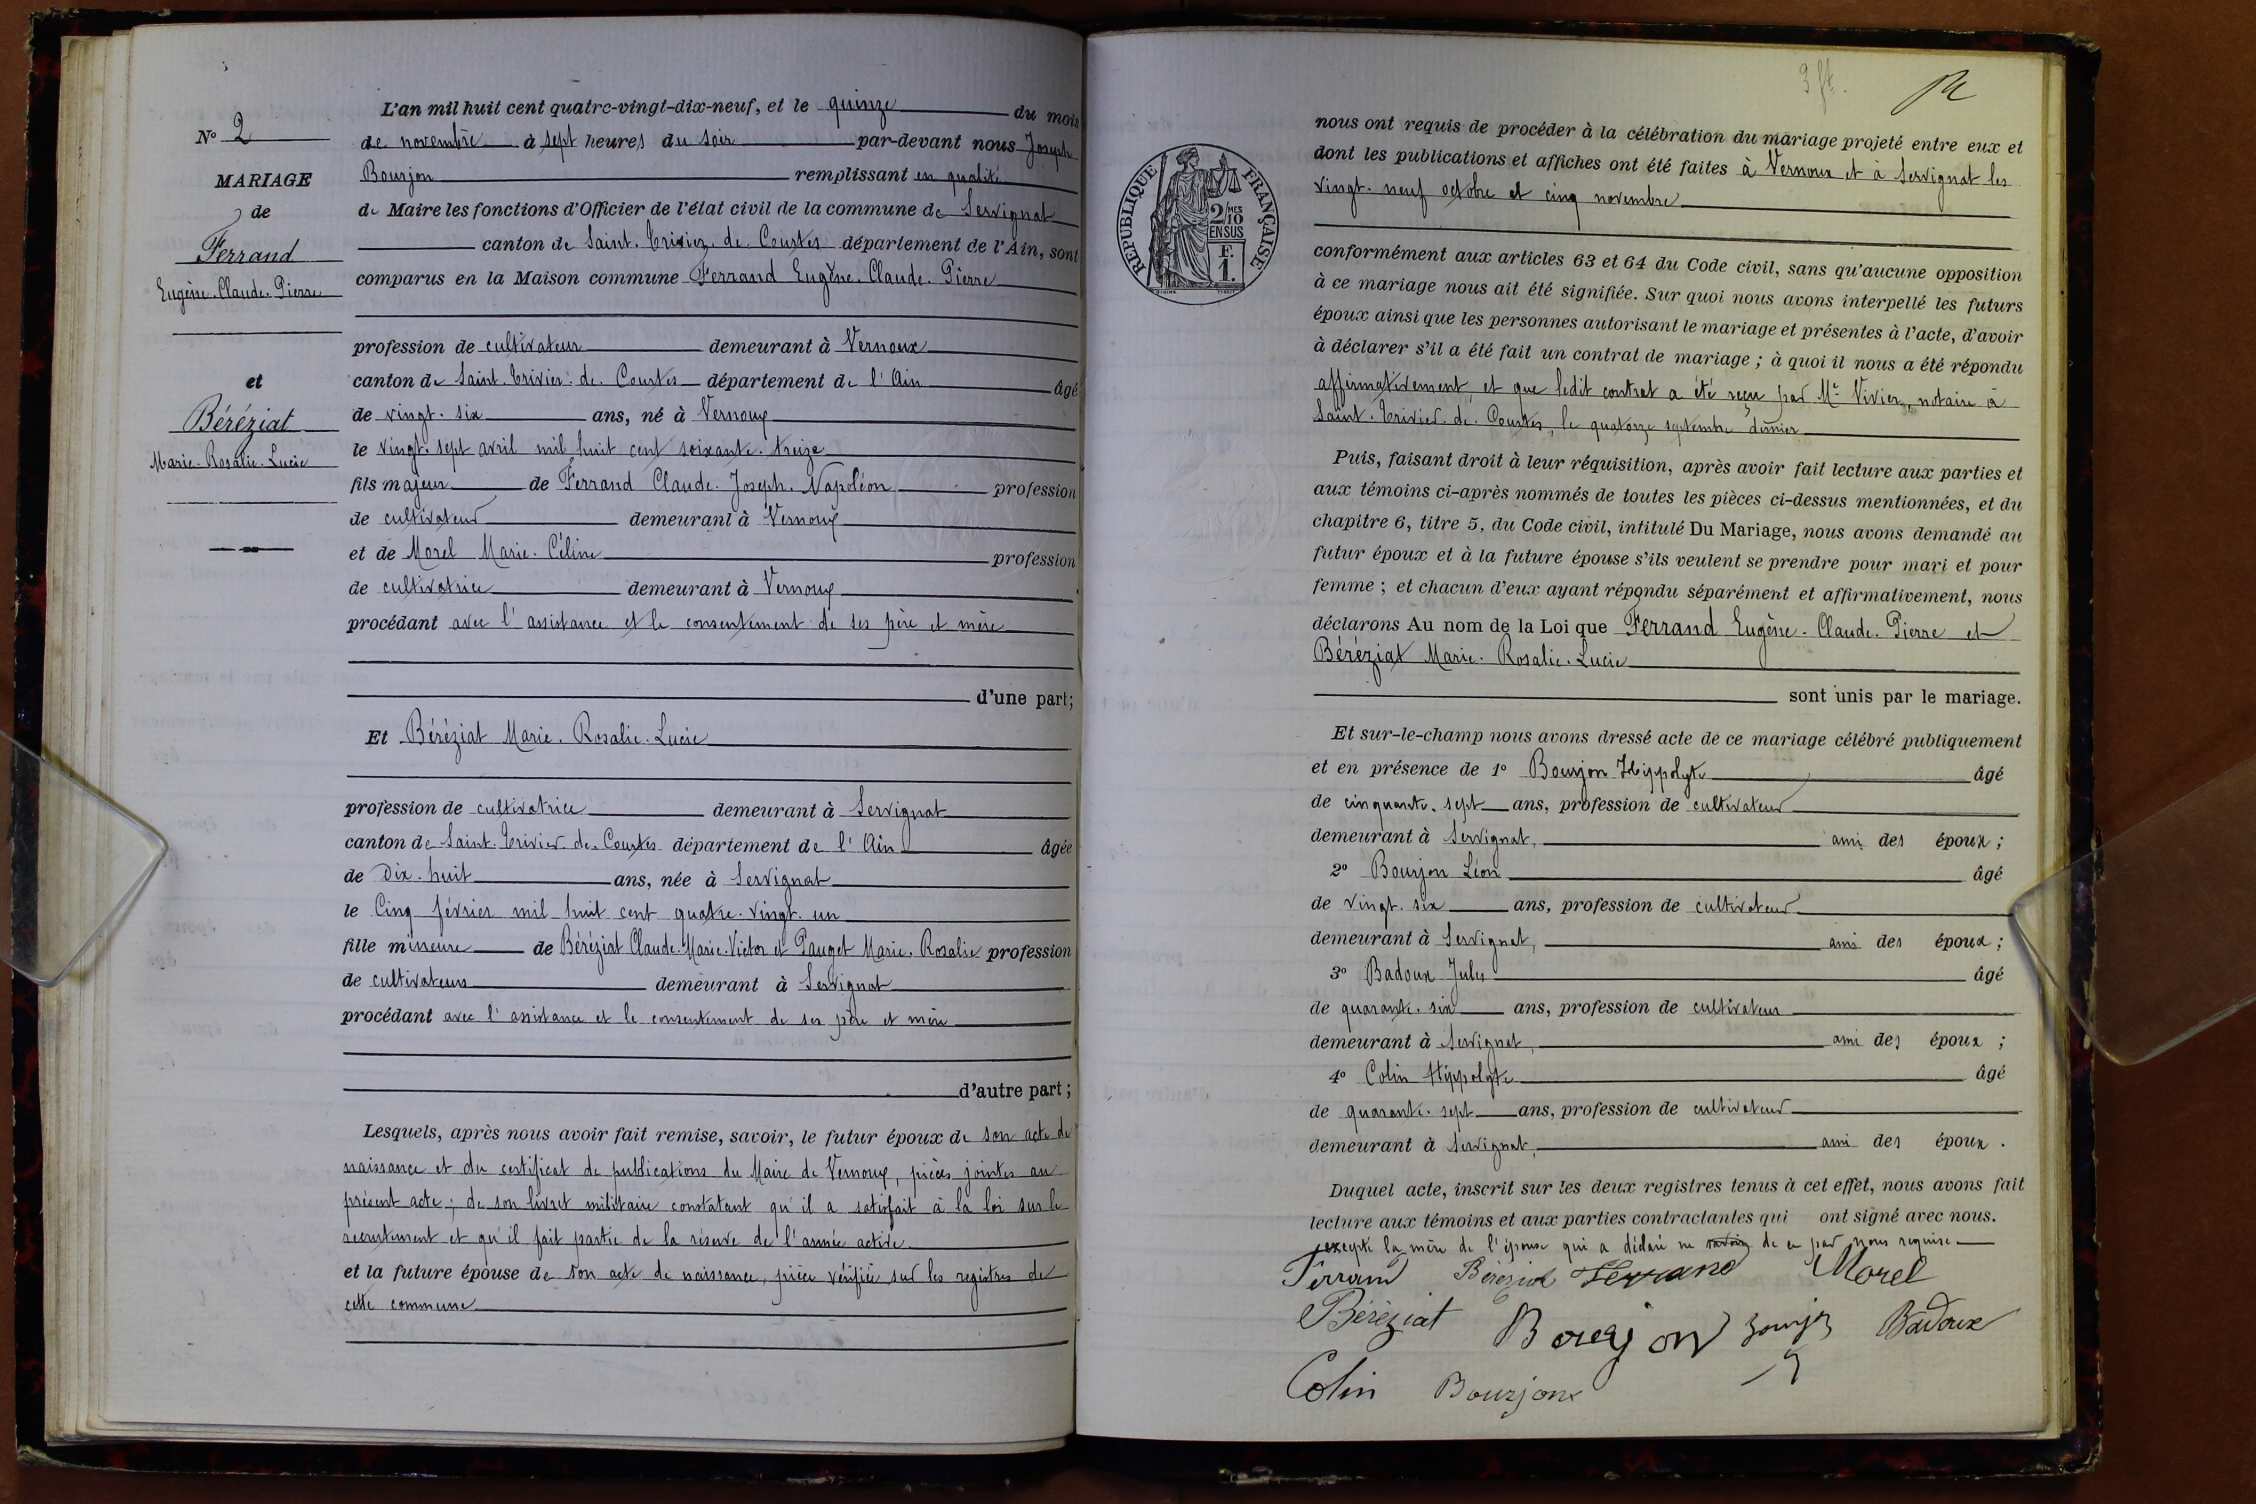 N° 2
MARIAGE
de
Ferrand
Eugène. Claude. Pierre
et
Béréziat
Marie. Rosalie. Lucie
L'an mil huit cent quatre-vingt-dix-neuf, et le quinze du mois
de novembre à sept heures du soir par-devant nous Joseph
Bourjon remplissant en qualité
de Maire les fonctions d'Officier de l'état civil de la commune de Servignat
canton de Saint. Trivier. de. Courtes département de l'Ain, sont
comparus en la Maison commune Ferrand Eugène. Claude. Pierre
profession de cultivateur demeurant à Vernoux
canton de Saint. Trivier. de. Courtes département de l'Ain âgé
de vingt. six ans, né à Vernoux
le vingt. sept avril mil huit cent soixante. treize
fils majeur de Ferrand Claude. Joseph. Napoléon profession
de cultivateur demeurant à Vernoux
et de Morel Marie. Céline profession
de cultivatrice demeurant à Vernoux
procédant avec l'assistance et le consentement de ses père et mère
d'une part;
Et Béréziat Marie. Rosalie. Lucie
profession de cultivatrice demeurant à Servignat
canton de Saint. Trivier. de. Courtes département de l'Ain âgée
de Dix. huit ans, née à Servignat
le Cinq février mil huit cent quatre. vingt. un
fille mineure de Béréziat Claude. Marie. Victor et Pauget Marie. Rosalie profession
de cultivateurs demeurant à Servignat
procédant avec l'assistance et le consentement de ses père et mère
d'autre part;
Lesquels, après nous avoir fait remise, savoir, le futur époux de son acte de
naissance et du certificat de publications du Maire de Vernoux, pièces jointes au
présent acte; de son livret militaire constatant qu'il a satisfait à la loi sur le
recrutement et qu'il fait partie de la réserve de l'armée active.
et la future épouse de son acte de naissance, pièce vérifiée sur les registres de
cette commune
3 ft.
RÉPUBLIQUE FRANÇAISE
2/10
MES
EN SUS
F.
1.
nous ont requis de procéder à la célébration du mariage projeté entre eux et
dont les publications et affiches ont été faites à Vernoux et à Servignat les
vingt. neuf octobre et cinq novembre
conformément aux articles 63 et 64 du Code civil, sans qu'aucune opposition
à ce mariage nous ait été signifiée. Sur quoi nous avons interpellé les futurs
époux ainsi que les personnes autorisant le mariage et présentes à l'acte, d'avoir
à déclarer s'il a été fait un contrat de mariage; à quoi il nous a été répondu
affirmativement, et que ledit contrat a été reçu par Me Vivier, notaire à
Saint. Trivier. de. Courtes, le quatorze septembre dernier
Puis, faisant droit à leur réquisition, après avoir fait lecture aux parties et
aux témoins ci-après nommés de toutes les pièces ci-dessus mentionnées, et du
chapitre 6, titre 5, du Code civil, intitulé Du Mariage, nous avons demandé au
futur époux et à la future épouse s'ils veulent se prendre pour mari et pour
femme; et chacun d'eux ayant répondu séparément et affirmativement, nous
déclarons Au nom de la Loi que Ferrand Eugène. Claude. Pierre et
Béréziat Marie. Rosalie. Lucie
sont unis par le mariage.
Et sur-le-champ nous avons dressé acte de ce mariage célébré publiquement
et en présence de 1° Bourjon Hippolyte âgé
de cinquante. sept ans, profession de cultivateur
demeurant à Servignat, ami des époux;
2° Bourjon Léon âgé
de vingt. six ans, profession de cultivateur
demeurant à Servignat, ami des époux;
3° Badoux Jules âgé
de quarante. six ans, profession de cultivateur
demeurant à Servignat, ami des époux;
4° Colin Hippolyte âgé
de quarante. sept ans, profession de cultivateur
demeurant à Servignat, ami des époux.
Duquel acte, inscrit sur les deux registres tenus à cet effet, nous avons fait
lecture aux témoins et aux parties contractantes qui ont signé avec nous.
excepté la mère de l'épouse qui a déclaré ne savoir de ce par nous requise
Ferrand Béréziat Ferrand Morel
Béréziat Bourjon Bourjon Badoux
Colin Bourjon